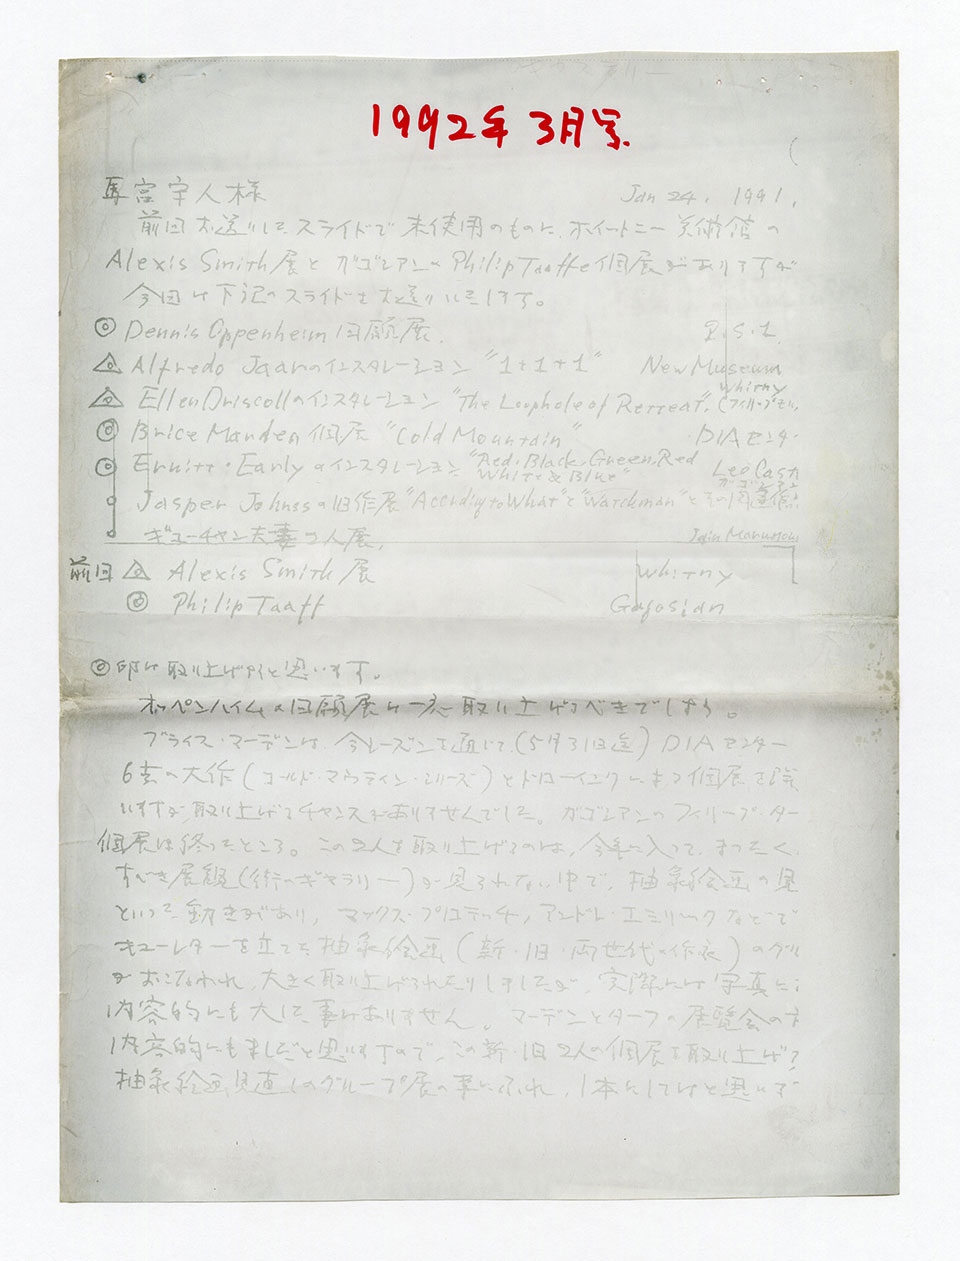 1992年3月号.
Jan 24, 1991.
馬宮守人様
前回お送りしたスライドで未使用のものに、ホイットニー美術館の
Alexis Smith展とガゴシアンのPhilip Taaffe個展がありますが
今回は下記のスライドをお送りいたします。
◎ Dennis Oppenheim回顧展. P.S.1.
Alfredo Jaarのインスタレーション "1+1+1" New Museum
Whitny
Ellen Driscollのインスタレーション "The Loophole of Retreat",
◎ Brice Marden個展 "Cold Mountain" DIAセンター
"Red, Black, Green, Red
Early のインスタレーション White & Blue" Leo Cast
Jasper Johnsの旧作展 "According to What"と"Watchman"とその関連
ギューチャン夫妻2人展.
前回 Alexis Smith展 Whitny
◎ Philip Taaff Gagosian
◎印は取り上げたいと思います。
オッペンハイムの回顧展は一応取り上げるべきでしょう。
ブライス・マーデンは、今シーズンを通じて(5月31日迄) DIAセンター
6点の大作(コールド・マウンテン・シリーズ)とドローイングによる個展を
いますが、取り上げるチャンスがありませんでした。ガゴシアンのフィリップ・ター
個展は終ったところ。この2人を取り上げるのは、今年に入って、まったく
すべき展観(街のギャラリー)が見られない中で、抽象絵画の見
といった動きがあり、マックス・プロテッチ、アンドレ・エメリックなどで
キューレターを立てた抽象絵画(新・旧・両世代の作家)のグル
がおこなわれ、大きく取り上げられたりしましたが、実際には写真に
内容的にも大した事はありません。マーデンとターフの展覧会の方
内容的にもましだと思いますので、この新・旧2人の個展を取り上げ、
抽象絵画見直しのグループ展の事にふれ、1本にしてはと思いま